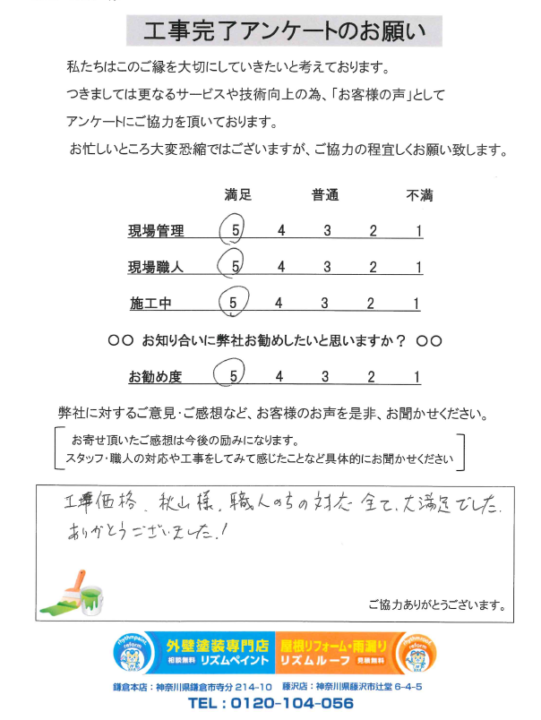 工事完了アンケートのお願い
私たちはこのご縁を大切にしていきたいと考えております。
つきましては更なるサービスや技術向上の為、「お客様の声」として
アンケートにご協力を頂いております。
お忙しいところ大変恐縮ではございますが、ご協力の程宜しくお願い致します。
満足 普通 不満
現場管理 5 4 3 2 1
現場職人 5 4 3 2 1
施工中 5 4 3 2 1
〇〇 お知り合いに弊社お勧めしたいと思いますか? 〇〇
お勧め度 5 4 3 2 1
弊社に対するご意見・ご感想など、お客様のお声を是非、お聞かせください。
お寄せ頂いたご感想は今後の励みになります。
スタッフ・職人の対応や工事をしてみて感じたことなど具体的にお聞かせください
価格、秋山様、職人の対応全て、大満足でした。
ありがとうございました!
ご協力ありがとうございます。
外壁塗装専門店 屋根リフォーム・雨漏り
相談無料 リズムペイント リズムルーフ 見積無料
鎌倉本店:神奈川県鎌倉市寺分214-10 藤沢店:神奈川県藤沢市辻堂6-4-5
TEL:0120-104-056